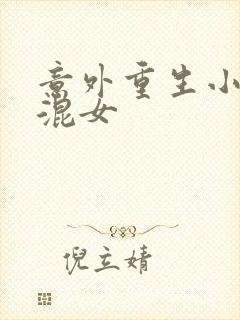 意外重生小
混女
倪立婧